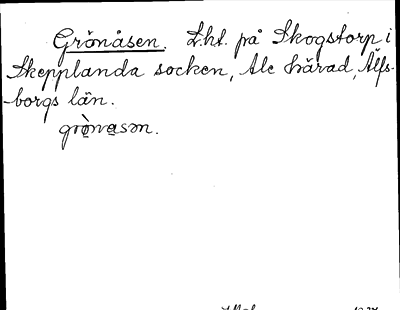 Grönåsen. Lht. på Skogstorp i
Skepplanda socken, Ale härad, Älfs-
borgs län.
grònasən.